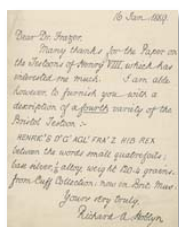 16 Jan. 1889.
Dear Dr. Frazer.
Many thanks for the Paper on
the Testoons of Henry VIII, which has
interested me much. I am able
however to furnish you with a
description of a fourth variety of the
Bristol Testoon :-
HENRIC'S 8' D' G' AGL' FRA' Z HIB REX
between the words small quatrefoils;
base silver, ⅓ alloy weighs 120.4 grains.
from Cuff Collection: now in Brit. Mus.
Yours very truly,
Richard A. Hoblyn.